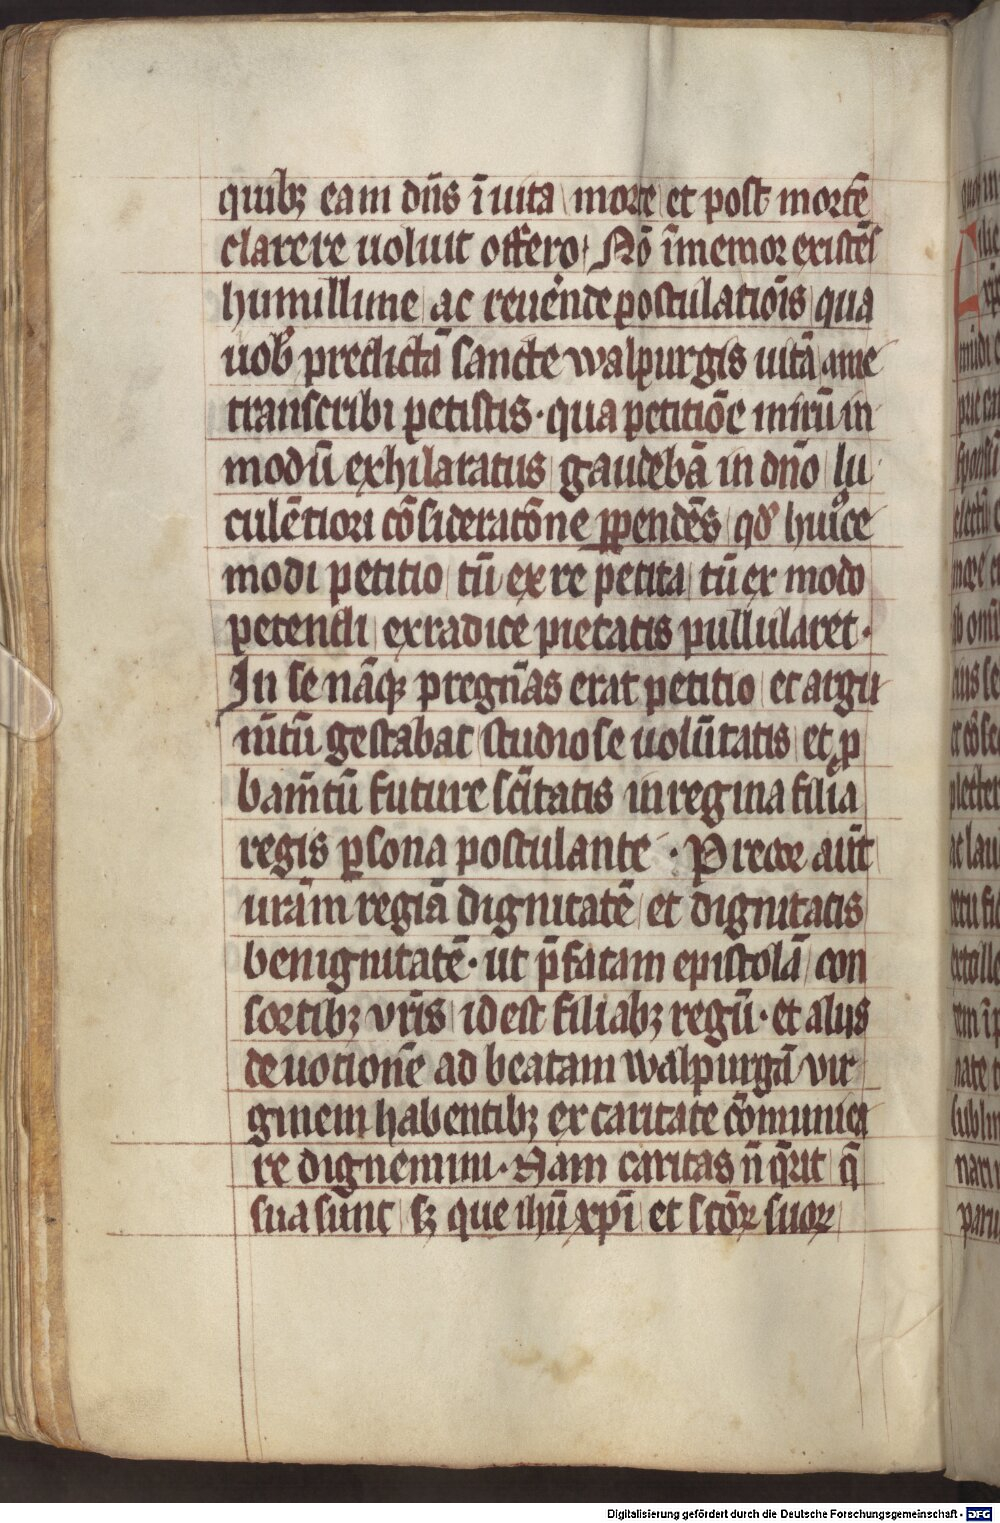 quibꝫ eam dn̄s ī uita morte et post mortē
clarere uoluit offero. Nō īmemor existēs
humillime ac reuēnde postulatiōis qua
uob̉ predictā sancte walpurgis uitā a me
transcribi petistis · qua petitiōe mirū in
modū exhilaratus gaudebā in dn̄o lu
culētiori cōsideratōne ꝑpendēs qd̉ huiꝰce
modi petitio tū ex re petita tū ex modo
petendi ex radice pietatis pullularet ·
In se nāqꝫ pregn̄as erat petitio et argu
m̄tū gestabat studiose uolūtatis et ꝓ
bam̄tū future sc̄itatis in regina filia
regis ꝑsona postulante · Precor aūt
urām regiā dignitatē et dignitatis
benignitatē · ut p̄fatam epistolā con
sortibꝫ vr̄is id est filiabꝫ regū · et aliis
deuotionē ad beatam walpurgā vir
ginem habentibꝫ ex caritate cōmunica
re dignemini · Nam caritas n̄ q̄rit q̄
sua sunt sꝫ que ihū xp̄i et sctōꝝ suoꝝ
Digitalisierung gefördert durch die Deutsche Forschungsgemeinschaft - DFG